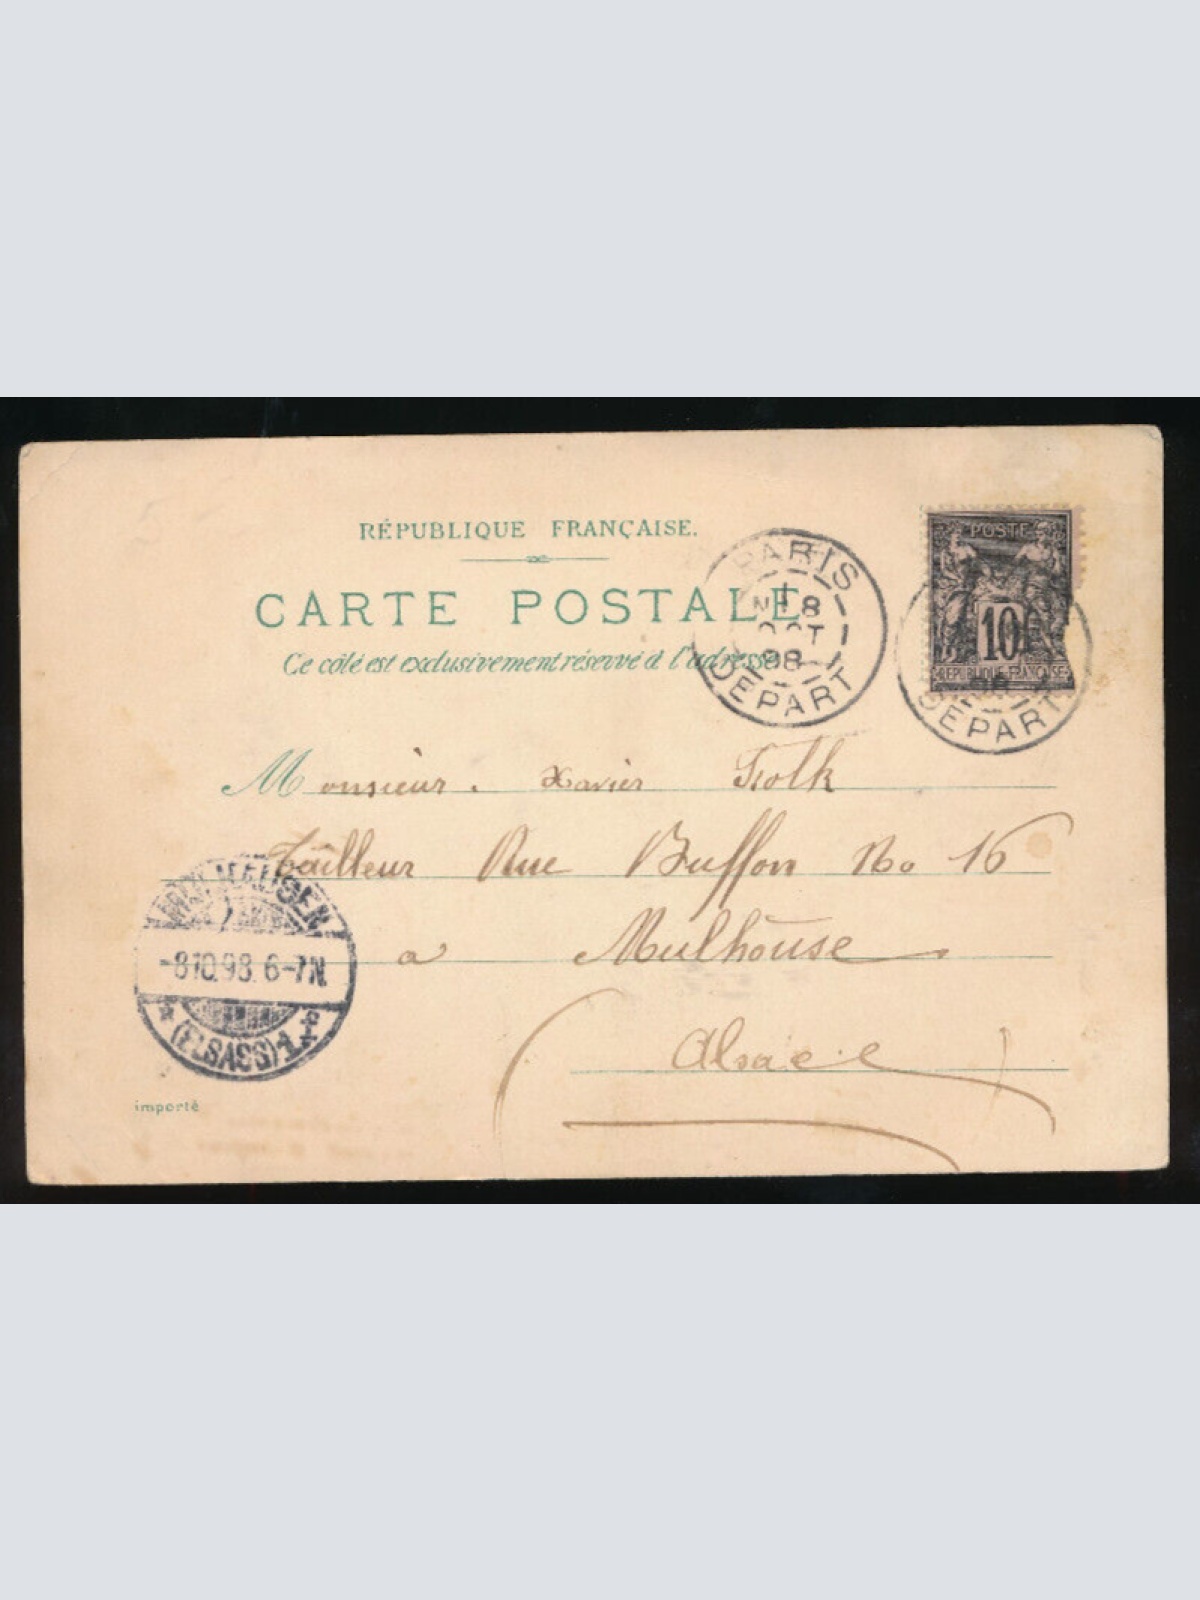 RÉPUBLIQUE FRANÇAISE.
CARTE POSTALE
Ce côté est exclusivement réservé à l'adresse
PARIS
8
OCT
98
DEPART
POSTE
10
REPUBLIQUE FRANÇAISE
DEPART
Monsieur. Xavier Folk
tailleur Rue Buffon No 16
a Mulhouse
Alsace
MÜLHAUSEN
-8.10.98. 6-7N.
(ELSASS)
importé